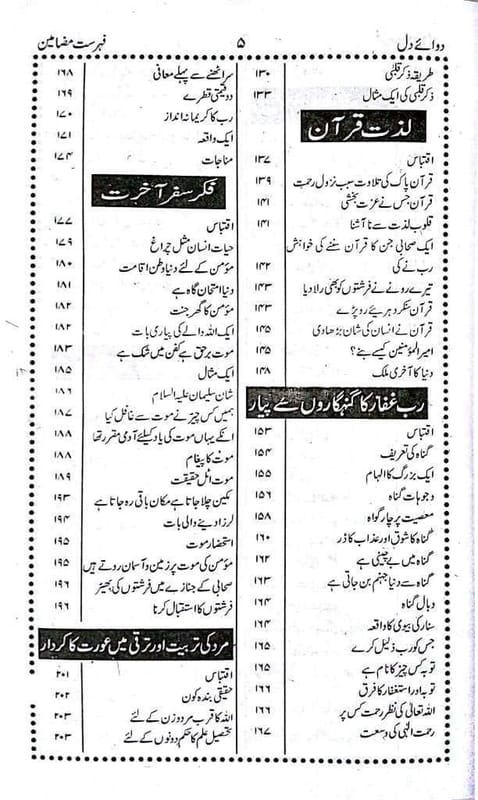 دوائے دل ۵ فہرست مضامین
طریقہ ذکر قلبی ۱۳۰
ذکر قلبی کی ایک مثال ۱۳۳
لذت قرآن
اقتباس ۱۳۷
قرآن پاک کی تلاوت سبب نزول رحمت ۱۳۹
قرآن جس نے عزت بخشی ۱۴۱
قلوب لذت سے نا آشنا ۱۴۱
ایک صحابی جن کا قرآن سننے کی خواہش
رب نے کی ۱۴۲
تیرے رونے نے فرشتوں کو بھی رلا دیا ۱۴۳
قرآن سنکر دہریئے رو پڑے ۱۴۳
قرآن نے انسان کی شان بڑھا دی ۱۴۵
امیر المؤمنین کیسے بنے؟ ۱۴۵
دنیا کا آخری ملک ۱۴۸
رب غفار کا گنہگاروں سے پیار
اقتباس ۱۵۳
گناہ کی تعریف ۱۵۴
ایک بزرگ کا الہام ۱۵۵
وجوہات گناہ ۱۵۶
معصیت پر چار گواہ ۱۵۸
گناہ کا شوق اور عذاب کا ڈر ۱۶۰
گناہ میں بے چینی ہے ۱۶۲
گناہ سے دنیا جہنم بن جاتی ہے ۱۶۳
وبال گناہ ۱۶۴
سنار کی بیوی کا واقعہ ۱۶۴
جس کو رب ذلیل کرے ۱۶۵
توبہ کس چیز کا نام ہے ۱۶۵
توبہ اور استغفار کا فرق ۱۶۶
اللہ تعالیٰ کی نظر رحمت کس پر ۱۶۶
رحمت الٰہی کی وسعت ۱۶۷
سر اٹھنے سے پہلے معافی ۱۶۸
دو قیمتی قطرے ۱۶۹
رب کا کریمانہ انداز ۱۷۰
ایک واقعہ ۱۷۱
مناجات ۱۷۴
فکر سفر آخرت
اقتباس ۱۷۷
حیات انسان مثل چراغ ۱۷۹
مؤمن کے لئے دنیا وطن اقامت ۱۸۰
دنیا امتحان گاہ ہے ۱۸۱
مؤمن کا گھر جنت ۱۸۲
ایک اللہ والے کی پیاری بات ۱۸۲
موت برحق ہے کفن میں شک ہے ۱۸۳
ایک مثال ۱۸۵
شان سلیمان علیہ السلام ۱۸۶
ہمیں کس چیز نے موت سے غافل کیا ۱۸۷
انکے یہاں موت کی یاد کیلئے آدمی مقرر تھا ۱۸۸
موت کا پیغام ۱۸۸
موت اٹل حقیقت ۱۸۹
مکین چلا جاتا ہے مکان باقی رہ جاتا ہے ۱۹۳
لرزا دینے والی بات ۱۹۴
استحضار موت ۱۹۵
مؤمن کی موت پر زمین و آسمان روتے ہیں ۱۹۵
صحابی کے جنازے میں فرشتوں کی بھیڑ ۱۹۶
فرشتوں کا استقبال کرنا ۱۹۶
مرد کی تربیت اور ترقی میں عورت کا کردار
اقتباس ۲۰۱
حقیقی بندہ کون ۲۰۲
اللہ کا قرب مرد و زن کے لئے ۲۰۳
تحصیل علم کا حکم دونوں کے لئے ۲۰۳